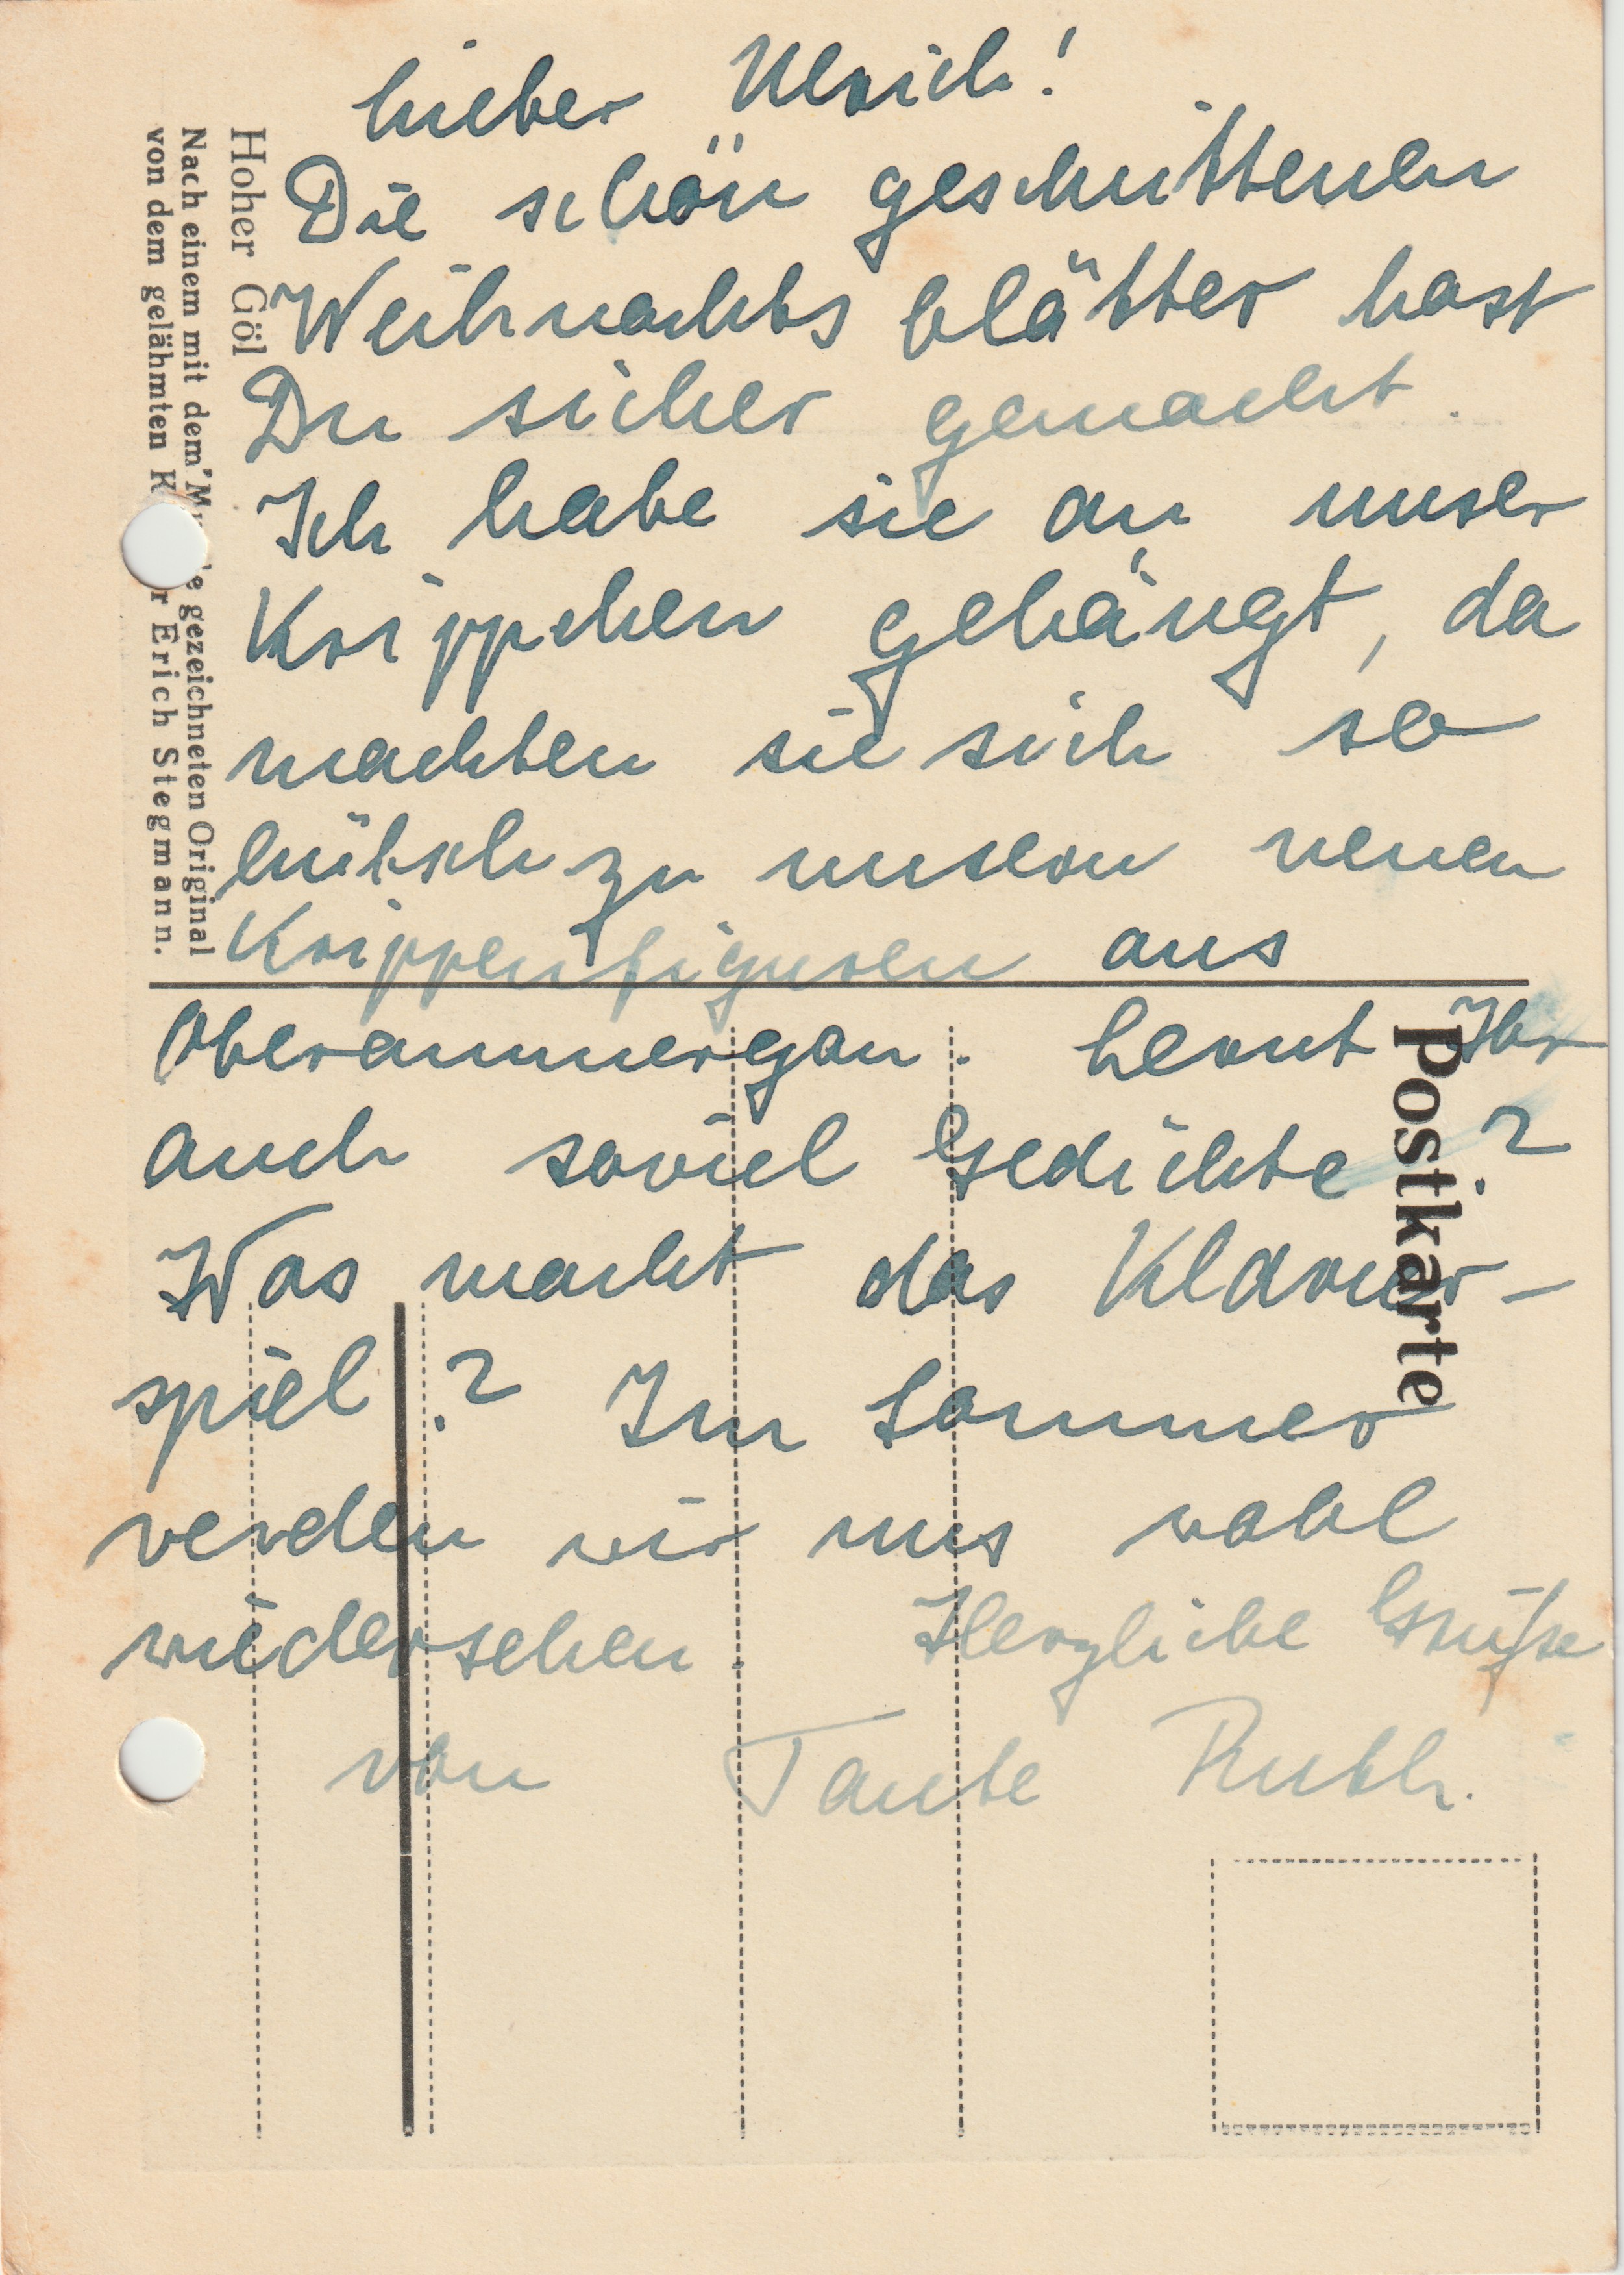 Lieber Ulrich!
Die schön geschnittenen
Weihnachtsblätter hast
Du sicher gemacht.
Ich habe sie an unser
Krippchen gehängt, da
machten sie sich so
hübsch zu unsern neuen
Krippenfiguren aus
Oberammergau. Lernt Ihr
auch soviel Gedichte?
Was macht das Klavier-
spiel? Im Sommer
werden wir uns wohl
wiedersehen. Herzliche Grüße
von Tante Ruth.
Hoher Göl
Nach einem mit dem gezeichneten Original
von dem gelähmten Erich Stegmann.
Postkarte